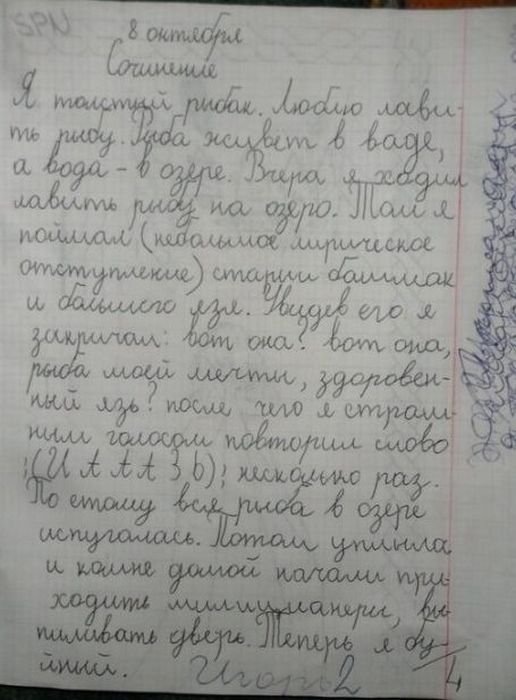 SPN
8 октября
Сочинение
Я толстый рыбак. Люблю лави-
ть рыбу. Рыба живет в ваде,
а вода - в озере. Вчера я ходил
лавить рыбу на озеро. Там я
поймал (небольшое лирическое
отступление) старий башмак
и большого язя. Увидев его я
закричал: вот она? вот она,
рыба моей мечты, здоровен-
ный язь? после чего я страш-
ным голосом повторил слово
;(И А А А З Ь); несколько раз.
По етому вся рыба в озере
испугалась. Потом уплыла
и комне домой начали при-
ходить милицианеры, вы-
пиливать дверь. Теперь я бу-
йный.
Игорь 2
4